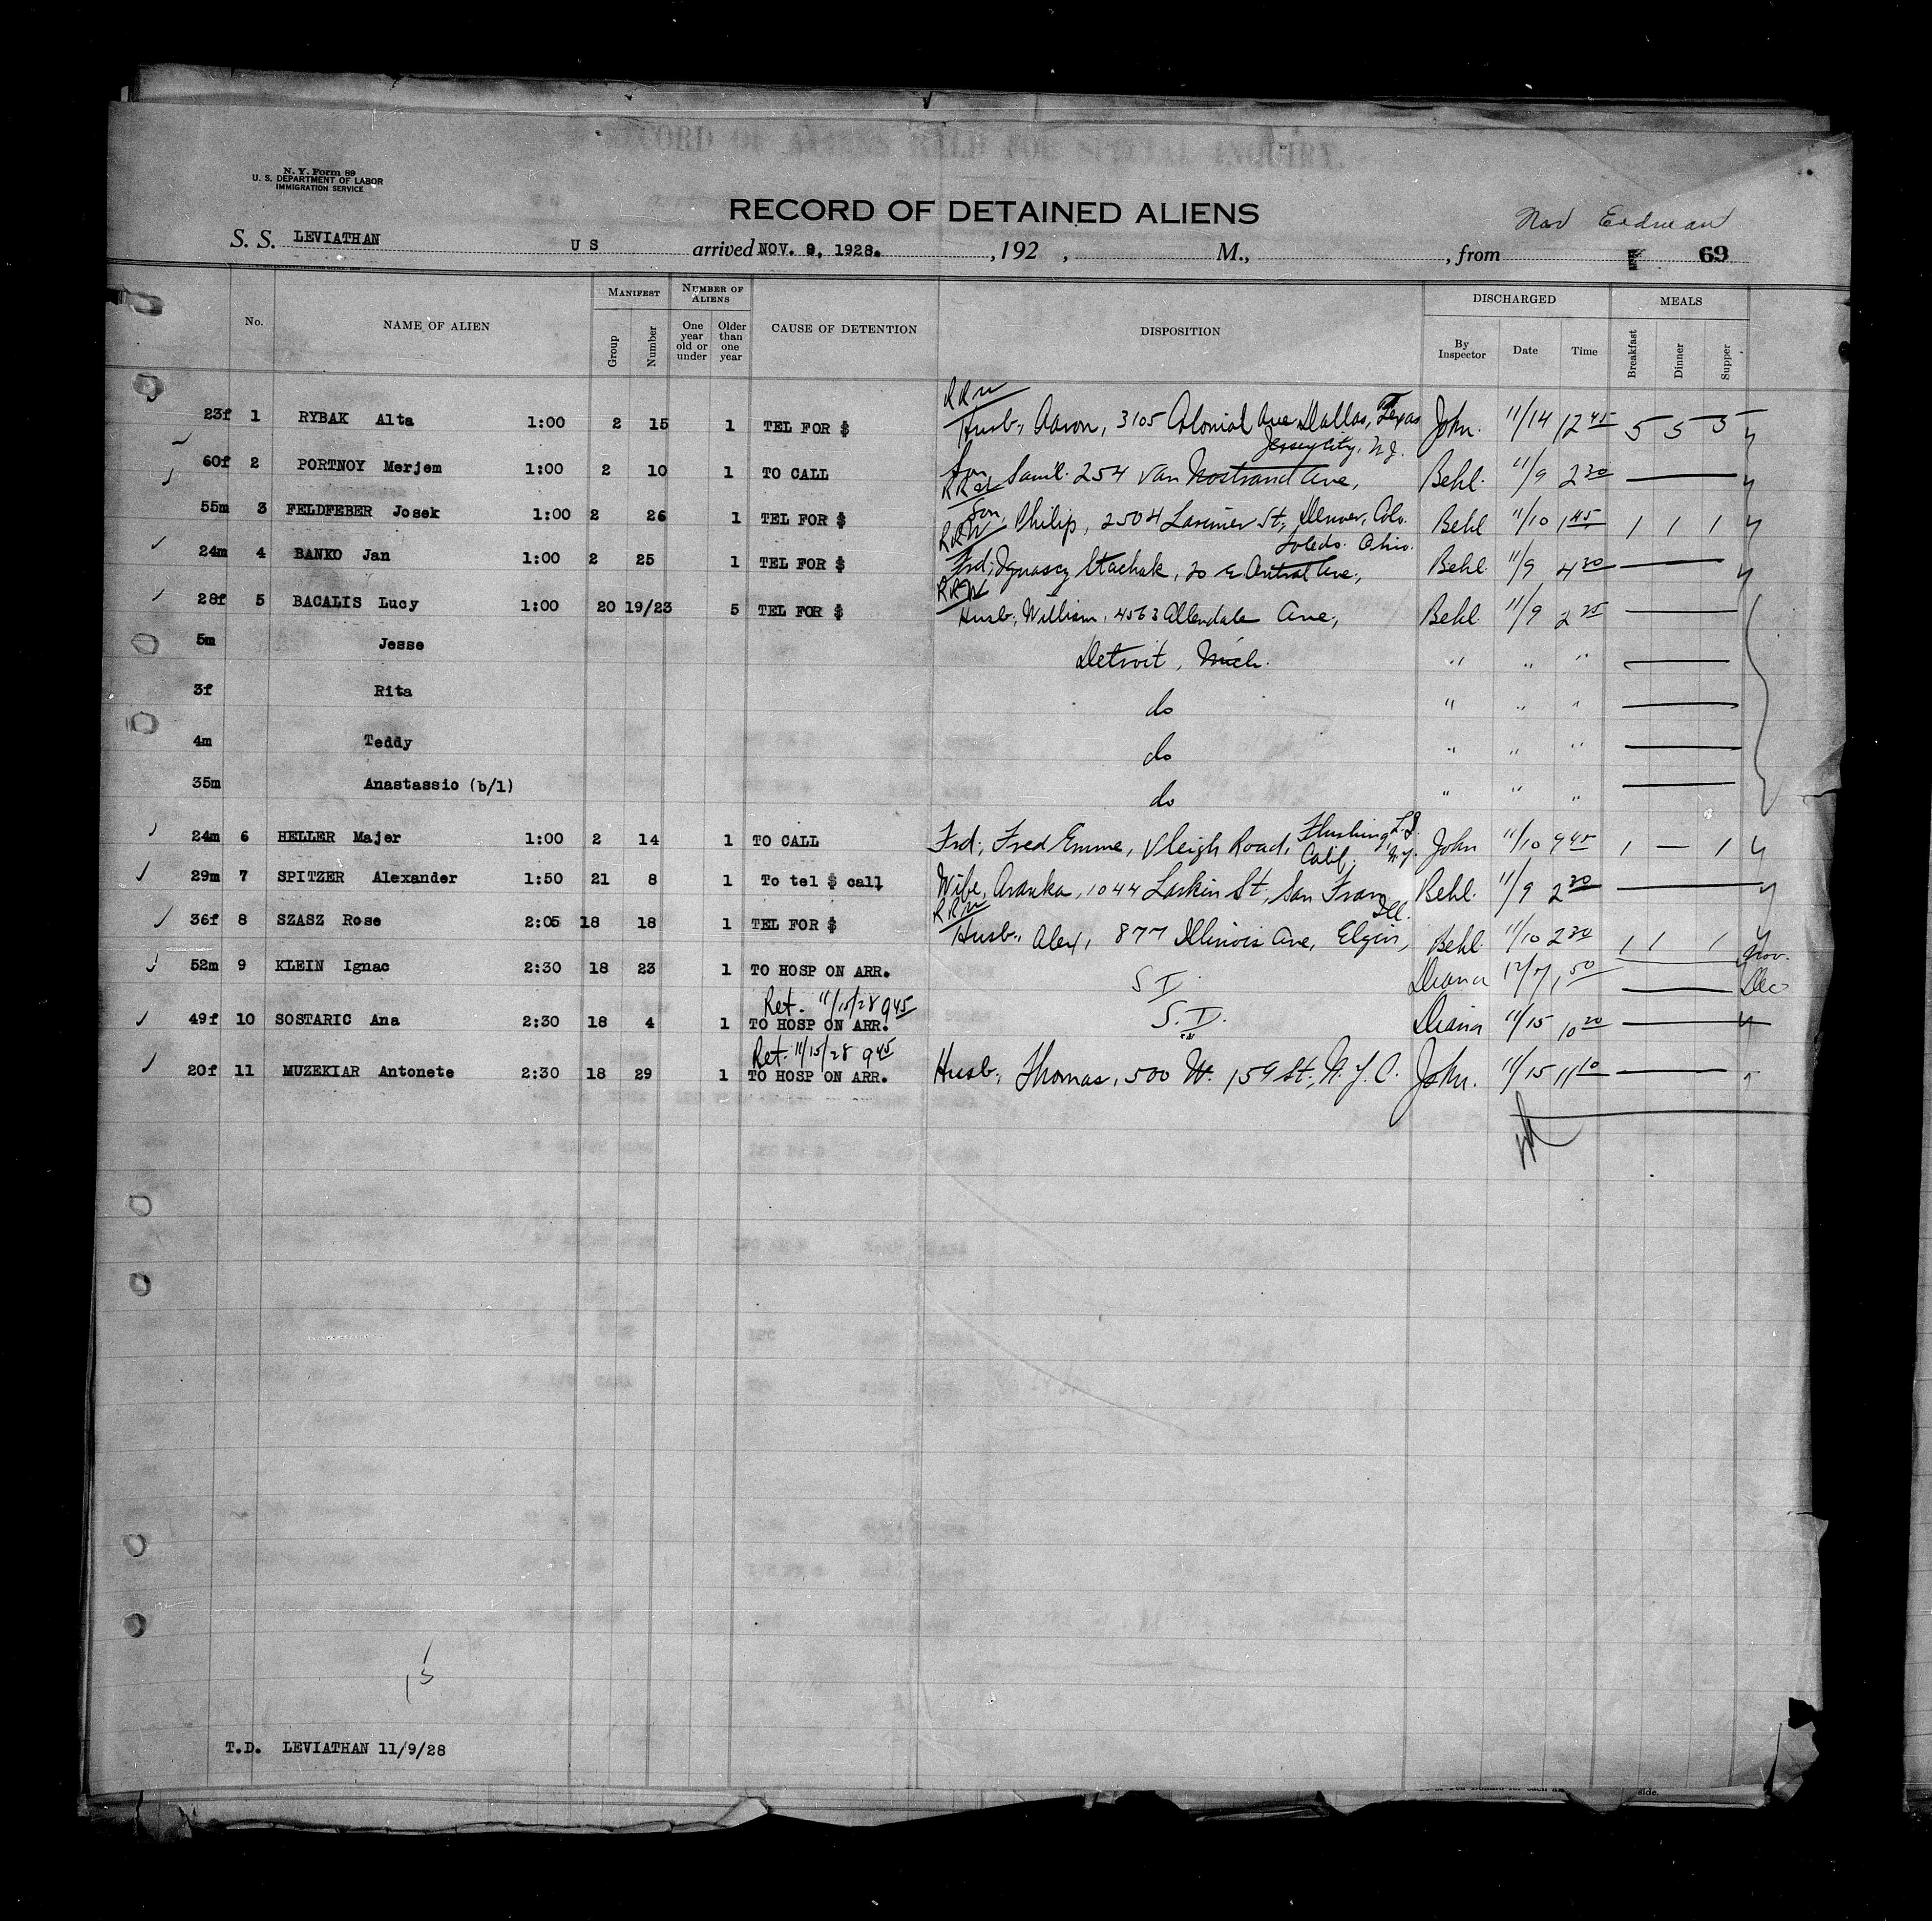 RECORD OF ALIENS HELD FOR SPECIAL INQUIRY.
N. Y. Form 89
U. S. DEPARTMENT OF LABOR
IMMIGRATION SERVICE
RECORD OF DETAINED ALIENS
S. S. LEVIATHAN US arrived NOV. 9, 1928. , 192 , M., , from 69
No. NAME OF ALIEN MANIFEST Group Number NUMBER OF ALIENS One year old or under Older than one year CAUSE OF DETENTION DISPOSITION DISCHARGED By Inspector Date Time MEALS Breakfast Dinner Supper
RRW
23f 1 RYBAK Alta 1:00 2 15 1 TEL FOR $ Husb., Aaron, 3105 Colonial Ave Dallas, Texas John. 11/14 12 45 5 5 5
Jersey City, N.J.
60f 2 PORTNOY Merjem 1:00 2 10 1 TO CALL Son, Saml. 254 Van Nostrand Ave, Behl. 11/9 2 30
RRW
55m 3 FELDFEBER Josek 1:00 2 26 1 TEL FOR $ Son, Philip, 2504 Larimer St, Denver, Colo. Behl 11/10 1 45 1 1 1
RRW Toledo Ohio.
24m 4 BANKO Jan 1:00 2 25 1 TEL FOR $ Frd; Ignascy Stachak, 20 E Central Ave, Behl. 11/9 4 30
RRW
28f 5 BACALIS Lucy 1:00 20 19/23 5 TEL FOR $ Husb, William, 4563 Allendale Ave, Behl 11/9 2 25
5m Jesse Detroit, Mich. " " "
3f Rita do " " "
4m Teddy do " " "
35m Anastassio (b/l) do " " "
24m 6 HELLER Majer 1:00 2 14 1 TO CALL Frd, Fred Emme, Vleigh Road, Flushing L.I. N.Y. John 11/10 9 45 1 — 1
Calif.
29m 7 SPITZER Alexander 1:50 21 8 1 To tel $ call Wife, Aranka, 1044 Larkin St, San Fran Behl. 11/9 2 30
RRW Ill.
36f 8 SZASZ Rose 2:05 18 18 1 TEL FOR $ Husb., Alex, 877 Illinois Ave, Elgin, Behl. 11/10 2 30 1 1 1
Nov.
52m 9 KLEIN Ignac 2:30 18 23 1 TO HOSP ON ARR. S I. Diana 12/7 1 50 Dec
Ret. 11/15/28 9 45
49f 10 SOSTARIC Ana 2:30 18 4 1 TO HOSP ON ARR. S. I. Diana 11/15 10 20
Ret. 11/15/28 9 45
20f 11 MUZEKIAR Antonete 2:30 18 29 1 TO HOSP ON ARR. Husb, Thomas, 500 W. 159 St, N.Y.C. John. 11/15 11 10
15
T.D. LEVIATHAN 11/9/28
side.